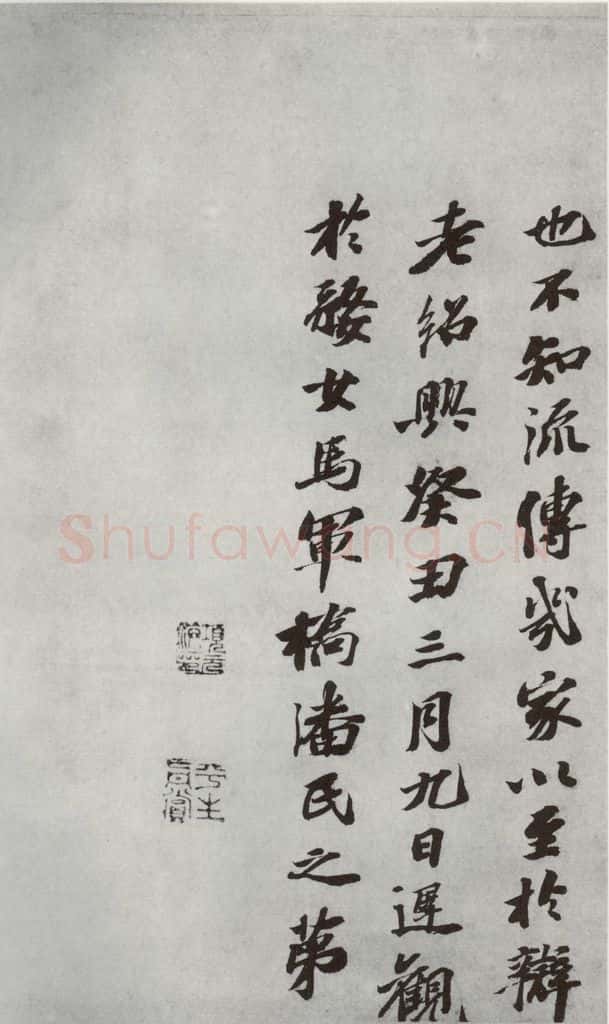 也不知流傳几家以至於辯
老紹興癸丑三月九日遲觀
於婺女馬軍橋潘氏之第
平生真賞
Shufawang.CN